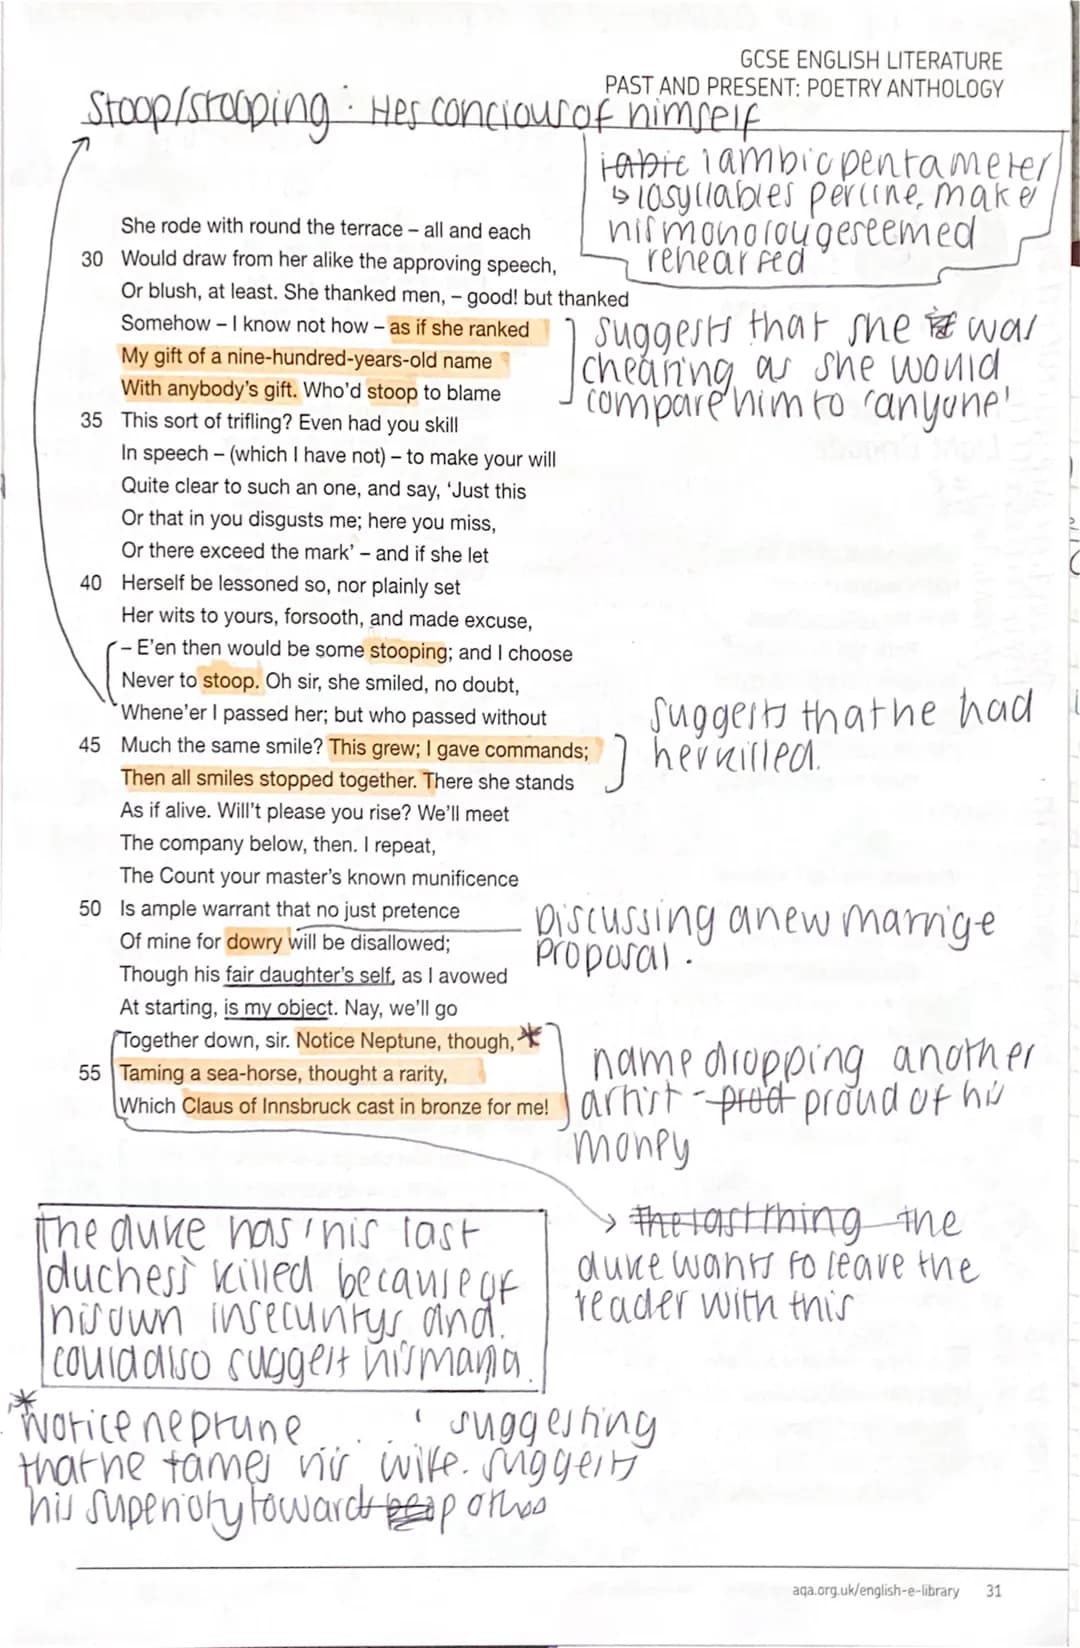 GCSE ENGLISH LITERATURE
PAST AND PRESENT: POETRY ANTHOLOGY
Stoop/stooping : Hes conciour of himself
iabic iambic pentameter
↳ 10syllables per line, make
his monolouge seemed
rehearsed
She rode with round the terrace – all and each
30 Would draw from her alike the approving speech,
Or blush, at least. She thanked men, – good! but thanked
Somehow – I know not how – as if she ranked
My gift of a nine-hundred-years-old name
With anybody's gift. Who'd stoop to blame
suggests that she is was
cheating as she would
compare him to 'anyone'
35 This sort of trifling? Even had you skill
In speech – (which I have not) – to make your will
Quite clear to such an one, and say, 'Just this
Or that in you disgusts me; here you miss,
Or there exceed the mark' – and if she let
40 Herself be lessoned so, nor plainly set
Her wits to yours, forsooth, and made excuse,
– E'en then would be some stooping; and I choose
Never to stoop. Oh sir, she smiled, no doubt,
Whene'er I passed her; but who passed without
45 Much the same smile? This grew; I gave commands;
Then all smiles stopped together. There she stands
suggests that he had
her killed.
As if alive. Will't please you rise? We'll meet
The company below, then. I repeat,
The Count your master's known munificence
50 Is ample warrant that no just pretence
Of mine for dowry will be disallowed;
Discussing a new marrige
proposal.
Though his fair daughter's self, as I avowed
At starting, is my object. Nay, we'll go
Together down, sir. Notice Neptune, though, *
55 Taming a sea-horse, thought a rarity,
Which Claus of Innsbruck cast in bronze for me!
name dropping another
artist - prod proud of his
money
→ the last thing the
duke wants to leave the
reader with this
The duke has 'his last
duchess' killed because of
his own insecuritys and
could also suggest his mania.
*
Notice neptune ' suggesting
that he tames his wife. suggests
his superioty toward peap others
aqa.org.uk/english-e-library 31